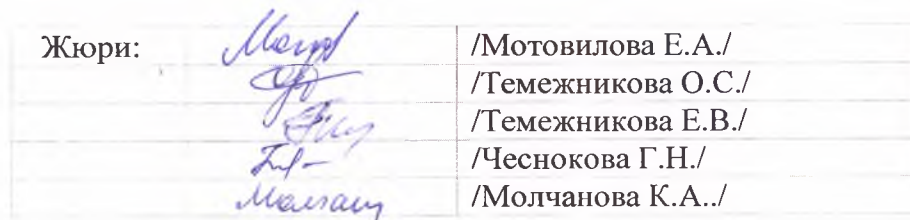 Жюри: /Мотовилова Е.А./
/Темежникова О.С./
/Темежникова Е.В./
/Чеснокова Г.Н./
/Молчанова К.А../